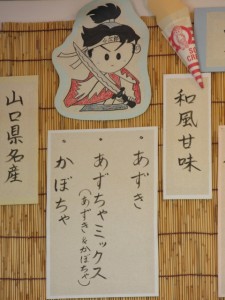 和風甘味
あずき
あずちゃミックス
(あずき&かぼちゃ)
かぼちゃ
山口県名産